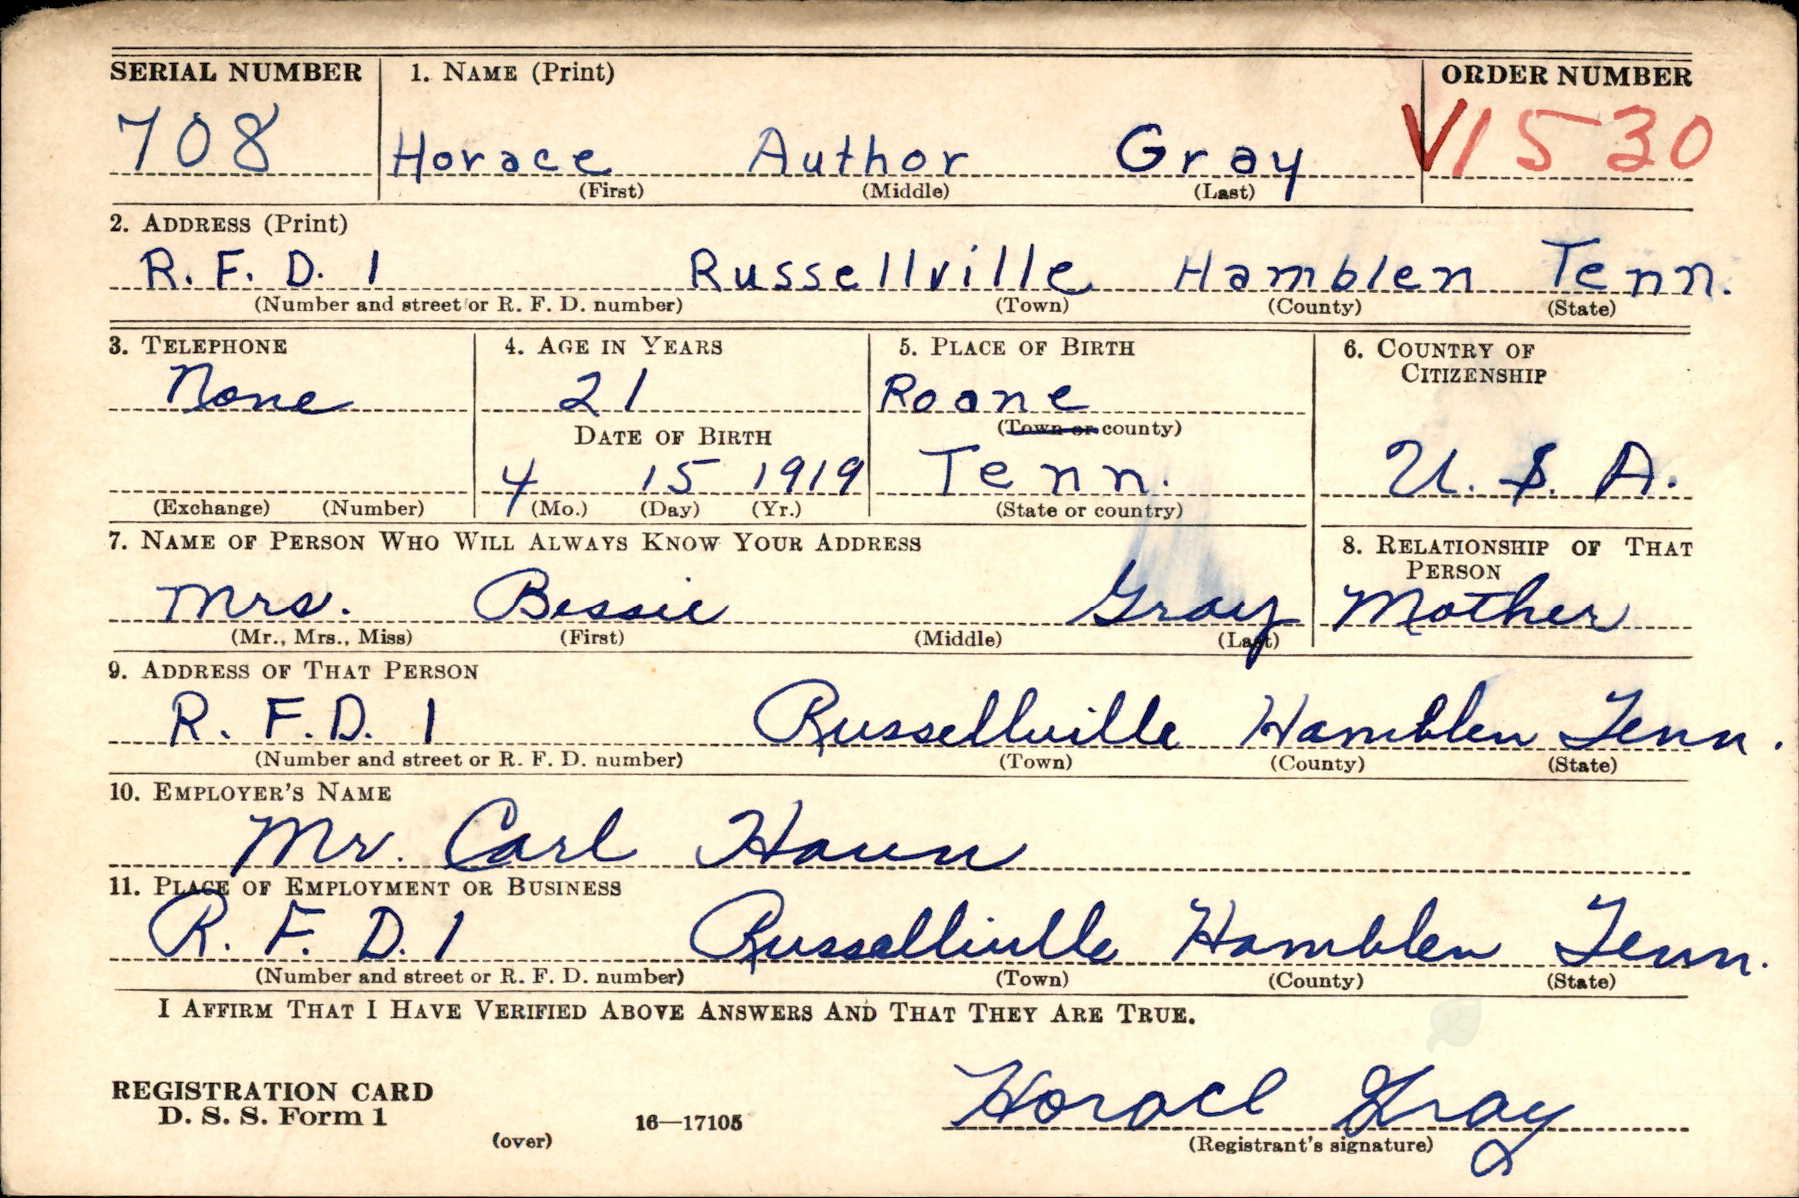 SERIAL NUMBER 1. NAME (Print) ORDER NUMBER
708 Horace Author Gray V1530
(First) (Middle) (Last)
2. ADDRESS (Print)
R. F. D. 1 Russellville Hamblen Tenn.
(Number and street or R. F. D. number) (Town) (County) (State)
3. TELEPHONE 4. AGE IN YEARS 5. PLACE OF BIRTH 6. COUNTRY OF
CITIZENSHIP
None 21 Roane
DATE OF BIRTH (Town or county)
4 15 1919 Tenn. U. S. A.
(Exchange) (Number) (Mo.) (Day) (Yr.) (State or country)
7. NAME OF PERSON WHO WILL ALWAYS KNOW YOUR ADDRESS 8. RELATIONSHIP OF THAT
PERSON
Mrs. Bessie Gray Mother
(Mr., Mrs., Miss) (First) (Middle) (Last)
9. ADDRESS OF THAT PERSON
R. F. D. 1 Russellville Hamblen Tenn.
(Number and street or R. F. D. number) (Town) (County) (State)
10. EMPLOYER'S NAME
Mr. Carl Haun
11. PLACE OF EMPLOYMENT OR BUSINESS
R. F. D. 1 Russellville Hamblen Tenn.
(Number and street or R. F. D. number) (Town) (County) (State)
I AFFIRM THAT I HAVE VERIFIED ABOVE ANSWERS AND THAT THEY ARE TRUE.
REGISTRATION CARD
D. S. S. Form 1 16—17105 Horace Gray
(over) (Registrant's signature)